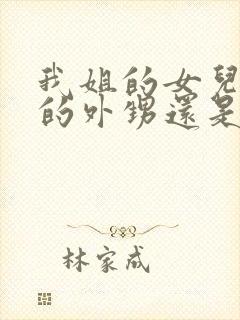 我姐的女兒
的外甥還是
林家成